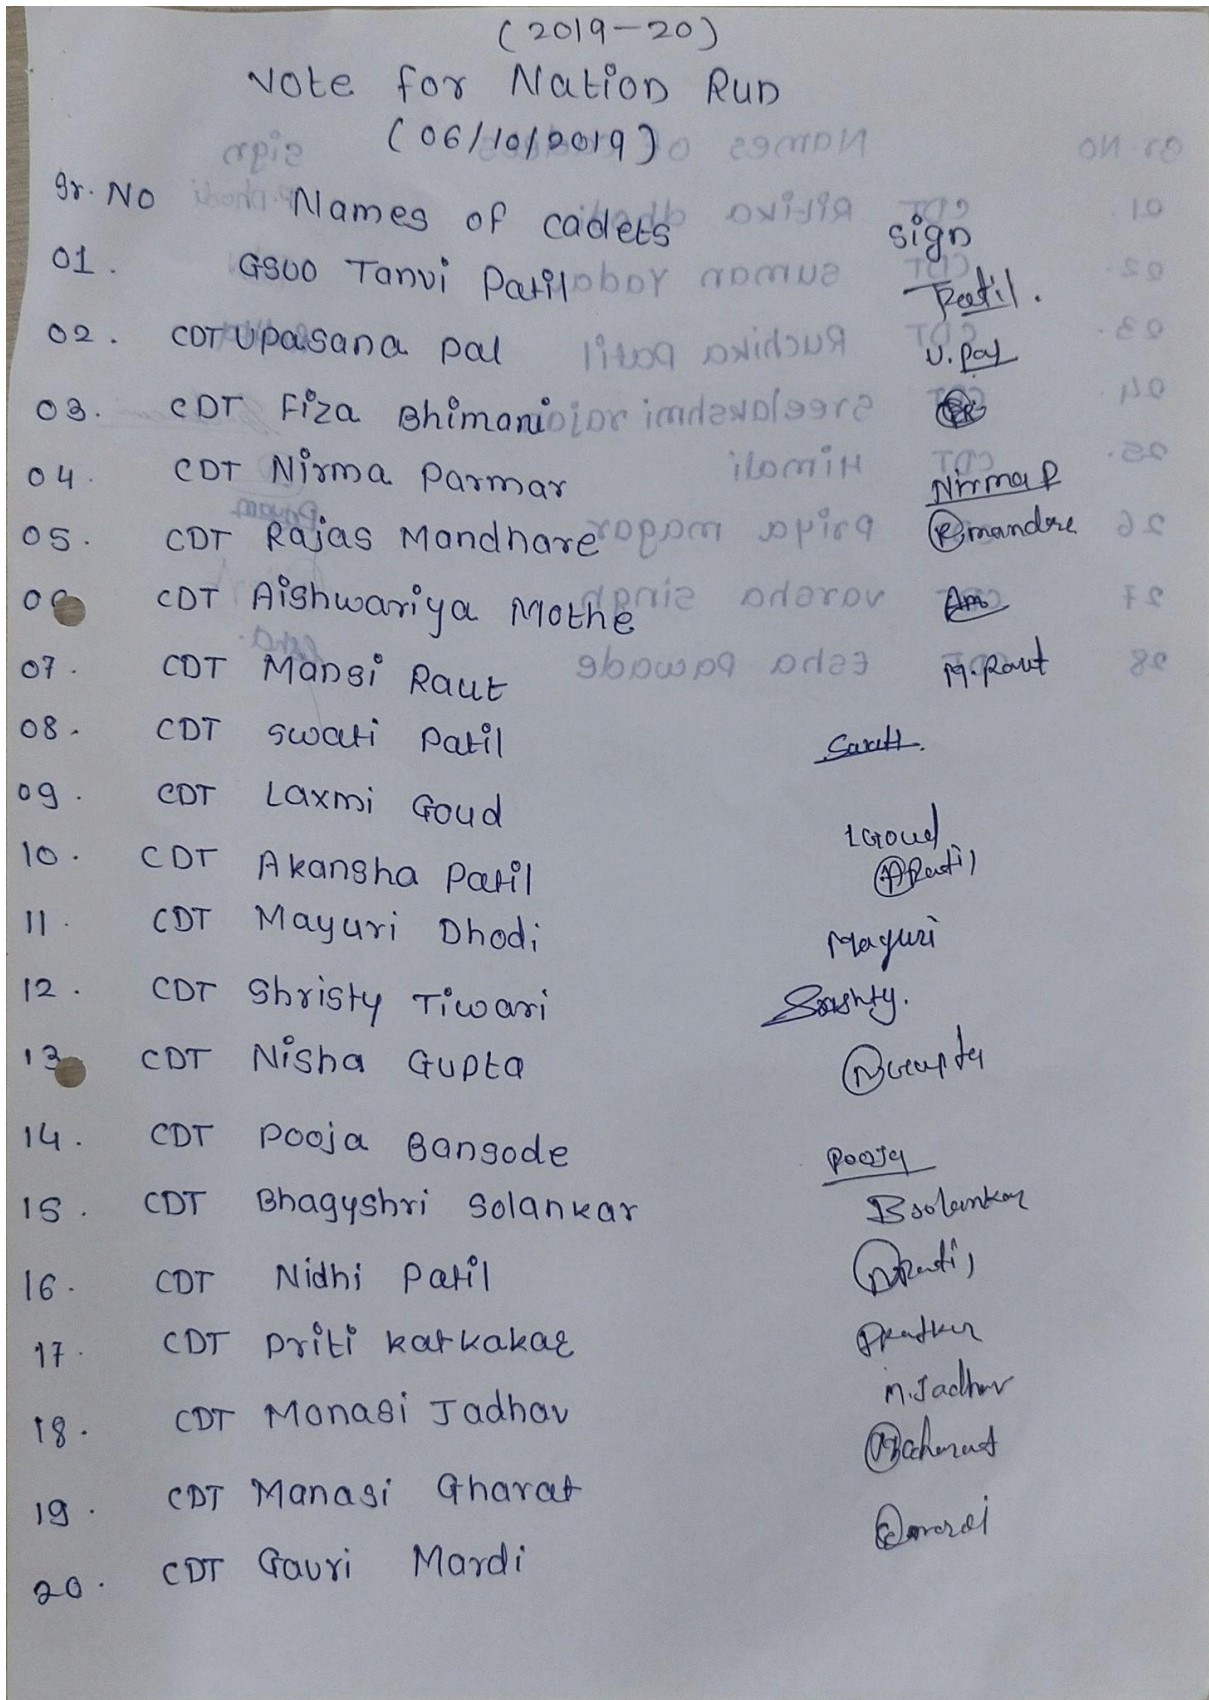 (2019-20)
Vote for Nation Run
(06/10/2019)
Sr. No Names of cadets sign
01. GSUO Tanvi Patil Patil.
02. CDT Upasana pal U. Pal
03. CDT Fiza Bhimani
04. CDT Nirma Parmar Nirma P
05. CDT Rajas Mandhare Rmandre
06 CDT Aishwariya Mothe Am
07. CDT Mansi Raut M. Raut
08. CDT Swati Patil
09. CDT Laxmi Goud LGoud
10. CDT Akansha Patil APatil
11. CDT Mayuri Dhodi Mayuri
12. CDT Shristy Tiwari Srishty.
13 CDT Nisha Gupta NGupta
14. CDT Pooja Bansode Pooja
15. CDT Bhagyshri Solankar BSolankar
16. CDT Nidhi Patil NPatil
17. CDT Priti Katkakar
18. CDT Monasi Jadhav M. Jadhav
19. CDT Manasi Gharat
20. CDT Gauri Mardi